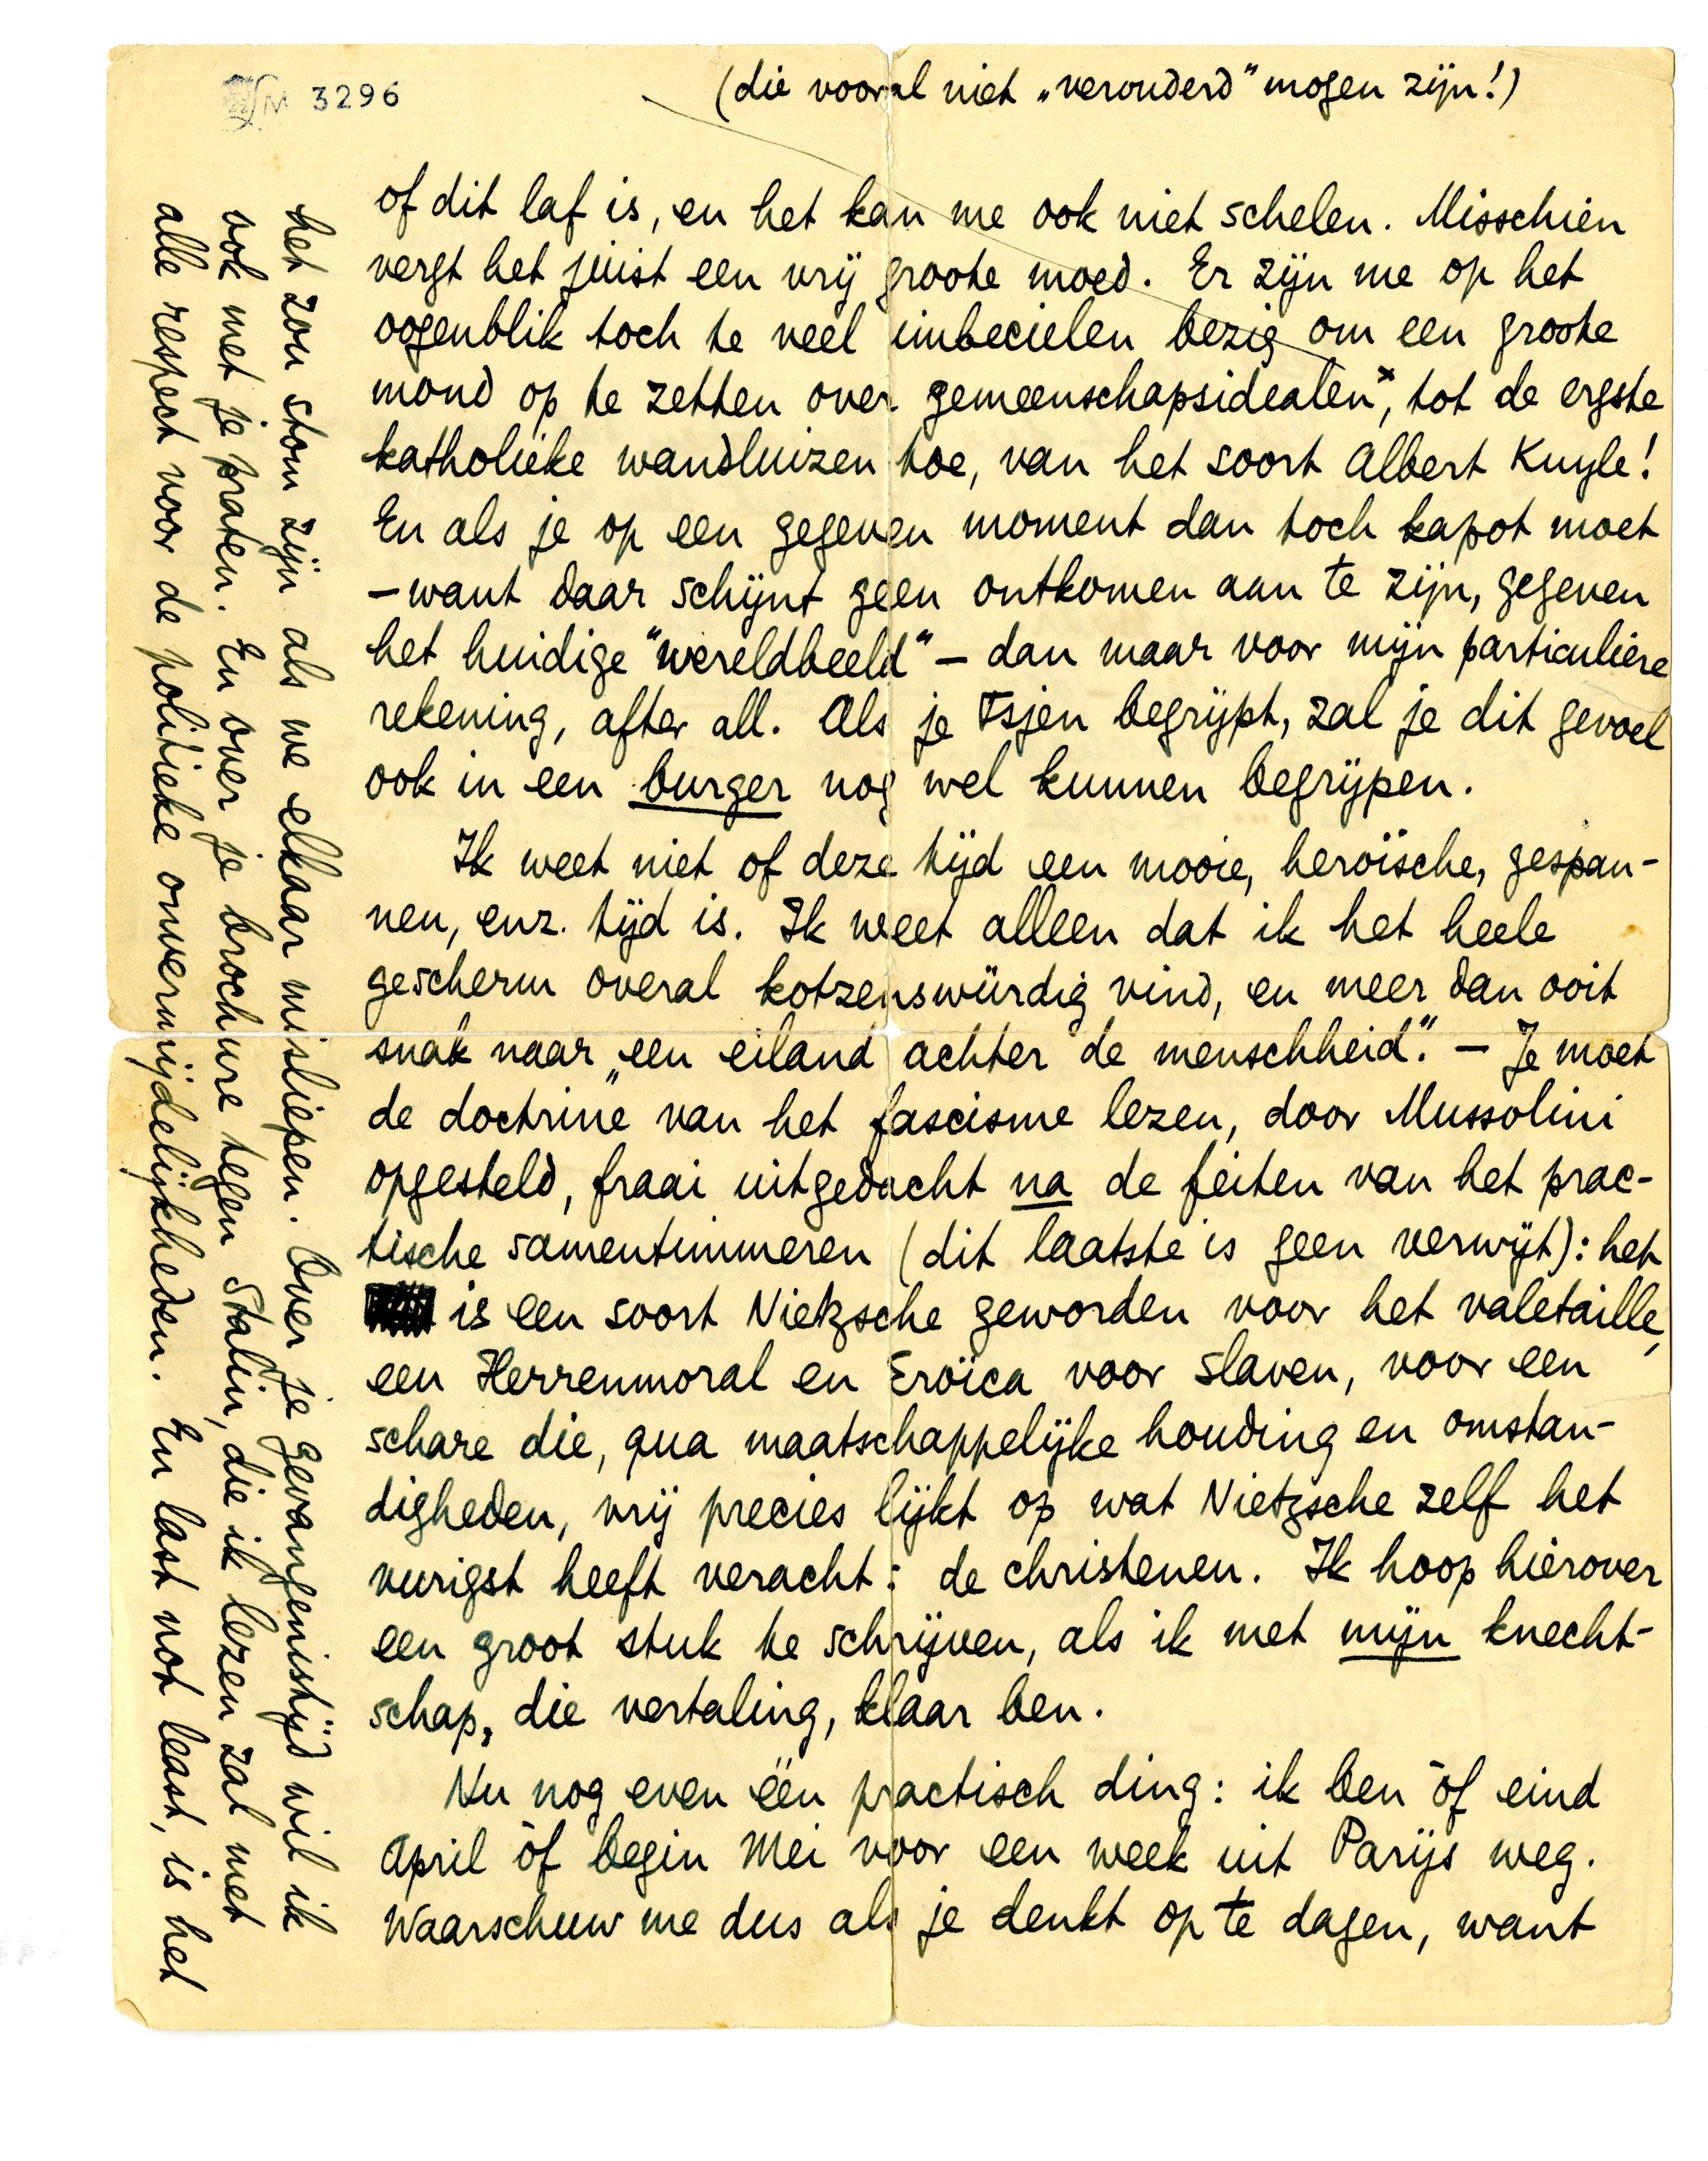 M 3296
(die vooral niet „verouderd” mogen zijn!)
of dit laf is, en het kan me ook niet schelen. Misschien
vergt het juist een vrij groote moed. Er zijn me op het
oogenblik toch te veel imbecielen bezig om een groote
mond op te zetten over gemeenschapsidealen×, tot de ergste
katholieke wandluizen toe, van het soort Albert Kuyle!
En als je op een gegeven moment dan toch kapot moet
– want daar schijnt geen ontkomen aan te zijn, gegeven
het huidige “wereldbeeld” – dan maar voor mijn particuliere
rekening, after all. Als je Tsjen begrijpt, zal je dit gevoel
ook in een burger nog wel kunnen begrijpen.
Ik weet niet of deze tijd een mooie, heroïsche, gespan-
nen, enz. tijd is. Ik weet alleen dat ik het heele
gescherm overal kotzenswürdig vind, en meer dan ooit
snak naar „een eiland achter de menschheid”. – Je moet
de doctrine van het fascisme lezen, door Mussolini
opgesteld, fraai uitgedacht na de feiten van het prac-
tische samentimmeren (dit laatste is geen verwijt): het
is een soort Nietzsche geworden voor het valetaille,
een Herrenmoral en Eroïca voor slaven, voor een
schare die, qua maatschappelijke houding en omstan-
digheden, vrij precies lijkt op wat Nietzsche zelf het
vurigst heeft veracht: de christenen. Ik hoop hierover
een groot stuk te schrijven, als ik met mijn knecht-
schap, die vertaling, klaar ben.
Nu nog even één practisch ding: ik ben òf eind
April òf begin Mei voor een week uit Parijs weg.
Waarschuw me dus als je denkt op te dagen, want
het zou stom zijn als we elkaar misliepen. Over je gevangenistijd wil ik
ook met je praten. En over je brochure tegen Stalin, die ik lezen zal met
alle respect voor de politieke onvermijdelijkheden. En last not least, is het